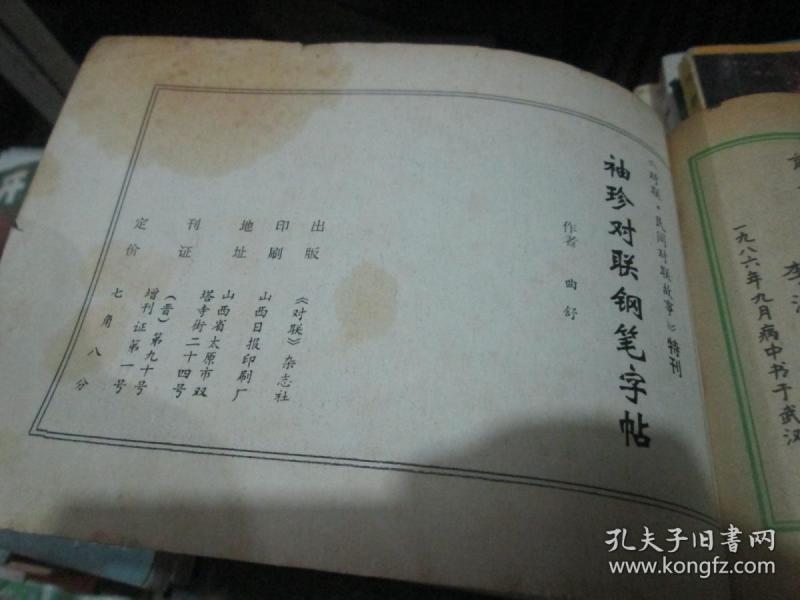 《对联·民间对联故事》特刊
袖珍对联钢笔字帖
作者 曲舒
出版 《对联》杂志社
印刷 山西日报印刷厂
地址 山西省太原市双
塔寺街二十四号
刊证 (晋)第九十号
增刊证第一号
定价 七角八分
一九八六年九月病中书于武汉
孔夫子旧书网
www.kongfz.com